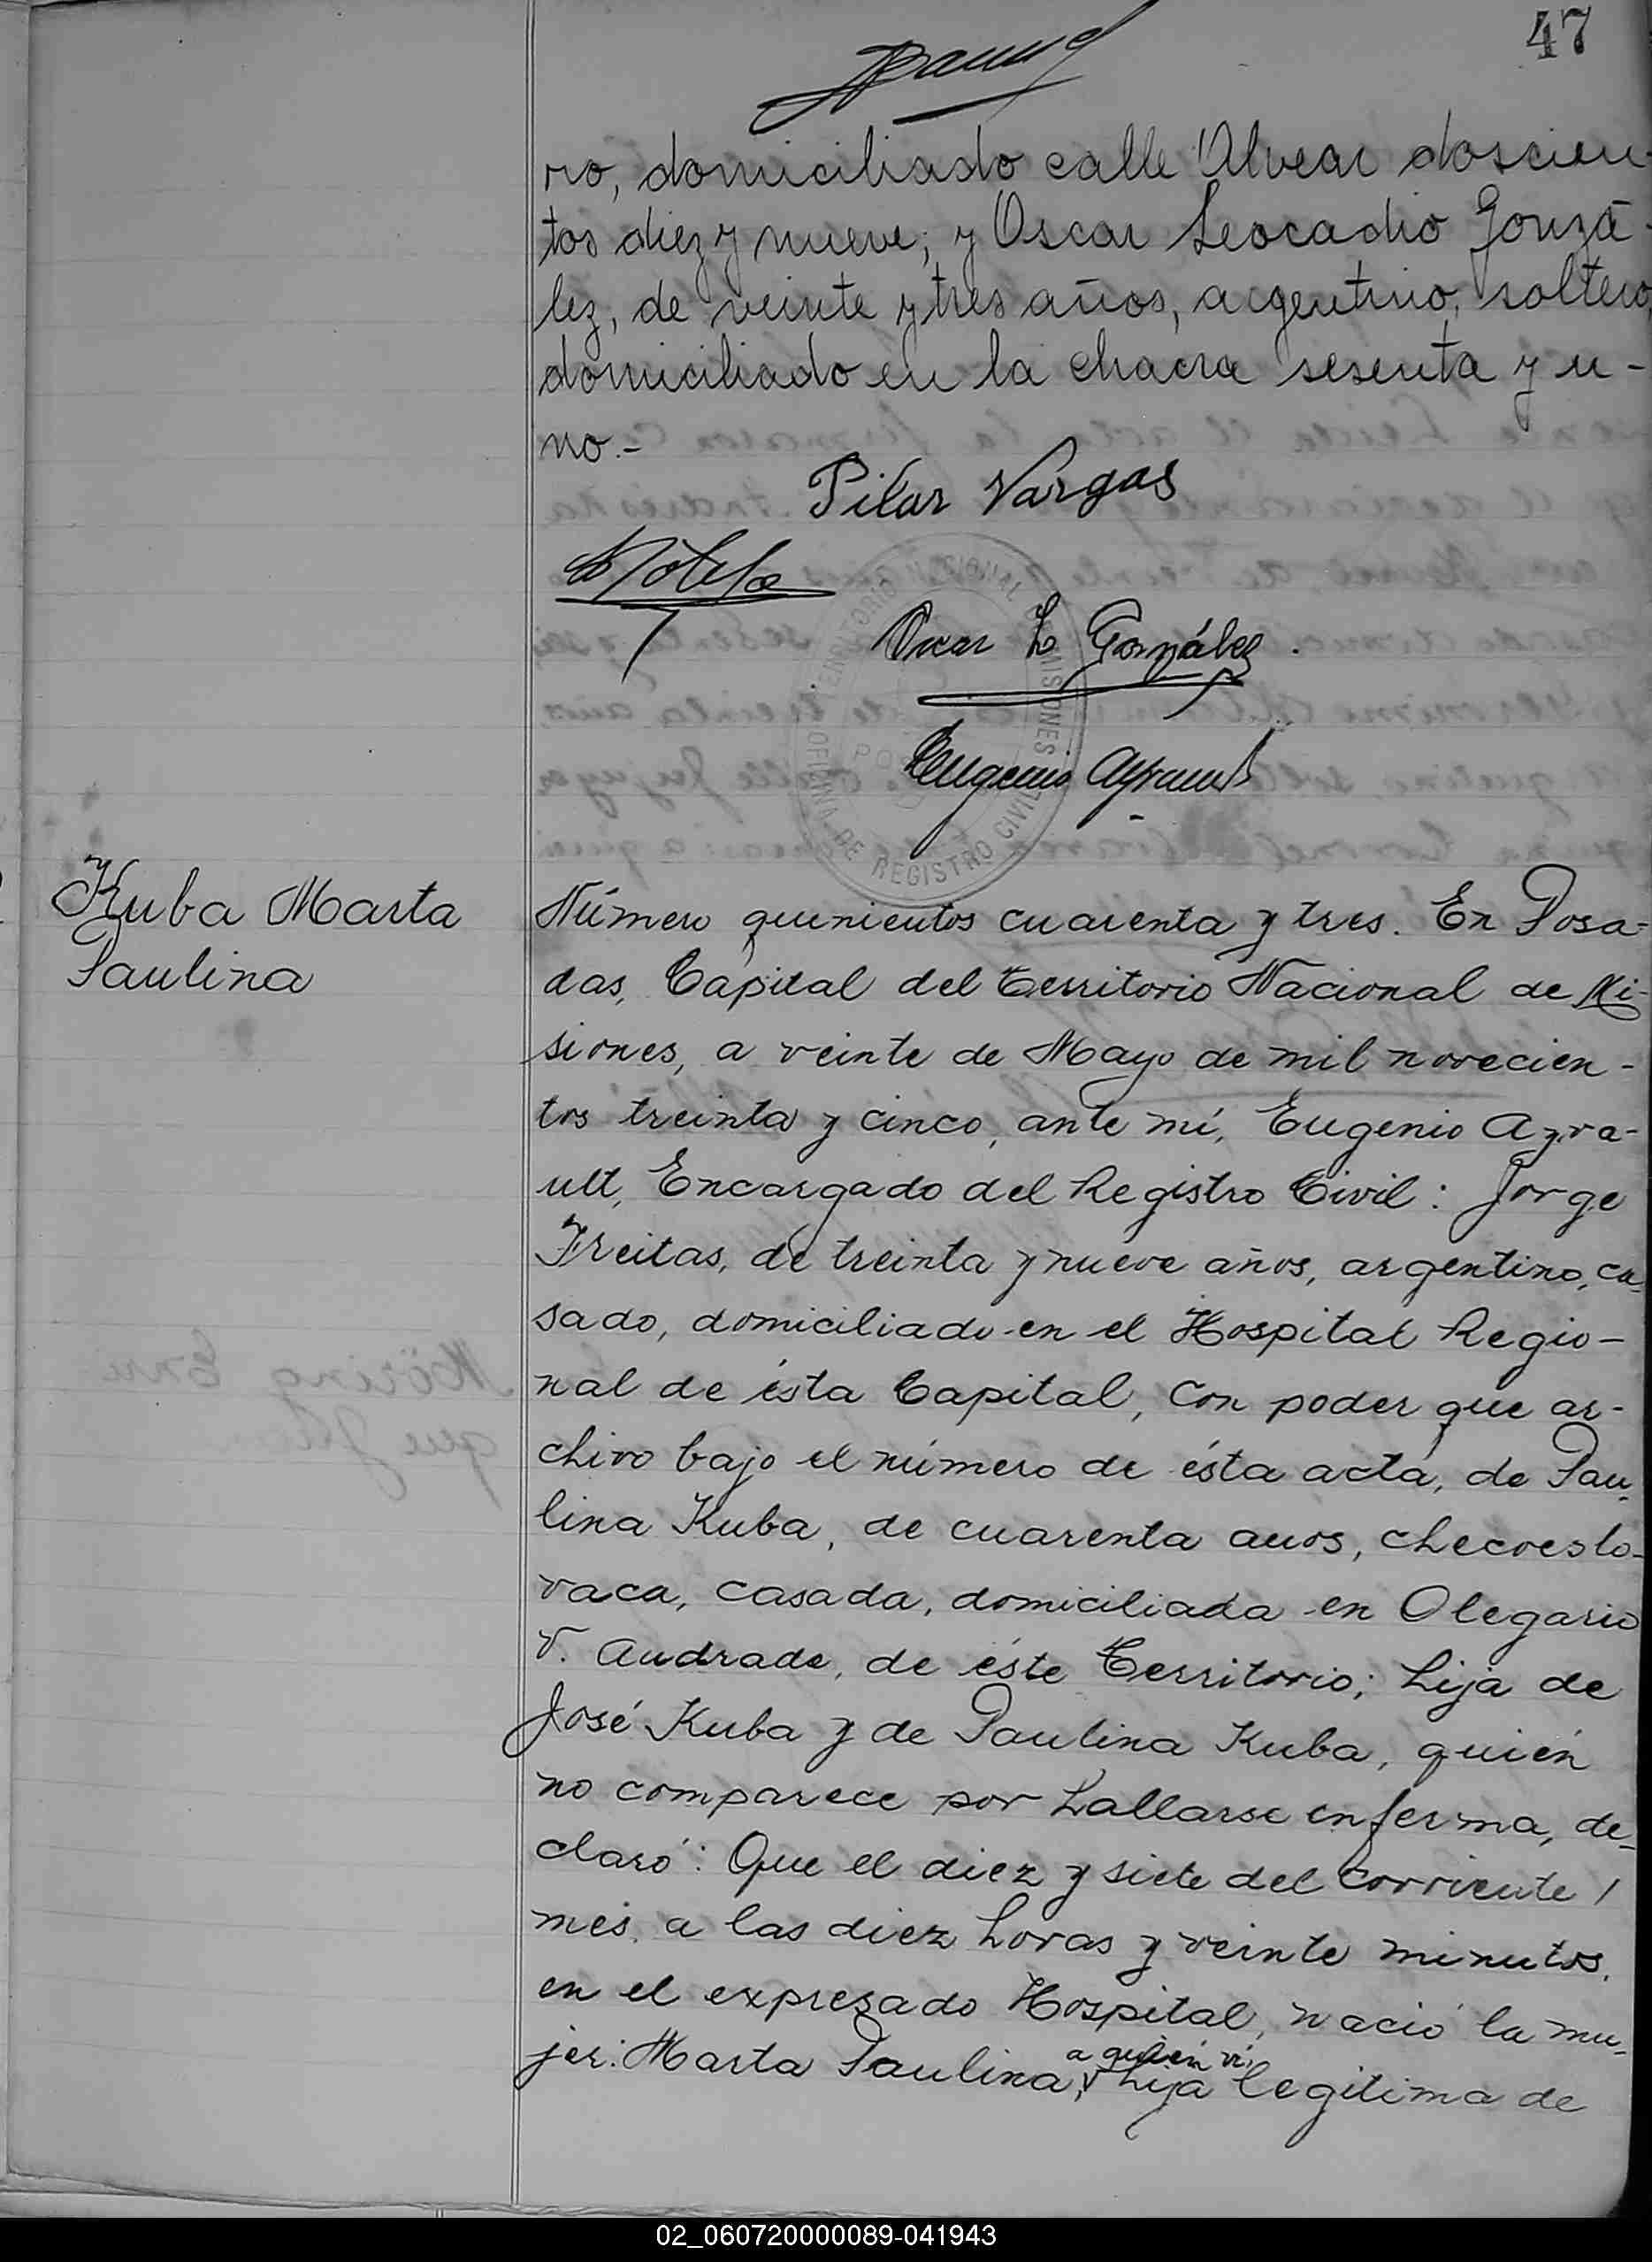 47
ro, domiciliado calle Alvear doscien-
tos diez y nueve; y Oscar Leocadio Gonzá-
lez, de veinte y tres años, argentino, soltero,
domiciliado en la chacra sesenta y u-
no.-
Pilar Vargas
Oscar L González.
Eugenio Ayrault
TERRITORIO NACIONAL DE MISIONES
OFICINA DE REGISTRO CIVIL
Kuba Marta
Paulina
Número quinientos cuarenta y tres. En Posa-
das, Capital del Territorio Nacional de Mi-
siones, a veinte de Mayo de mil novecien-
tos treinta y cinco, ante mí, Eugenio Ayra-
ult, Encargado del Registro Civil: Jorge
Freitas, de treinta y nueve años, argentino, ca-
sado, domiciliado en el Hospital Regio-
nal de ésta Capital, con poder que ar-
chivo bajo el número de ésta acta, de Pau-
lina Kuba, de cuarenta años, checoeslo-
vaca, casada, domiciliada en Olegario
V. Andrade, de éste Territorio; hija de
José Kuba y de Paulina Kuba, quién
no comparece por hallarse enferma, de-
claró: Que el diez y siete del corriente /
mes, a las diez horas y veinte minutos,
en el expresado Hospital, nació la mu-
a quién ví,
jer: Marta Paulina, hija legitima de
02_060720000089-041943